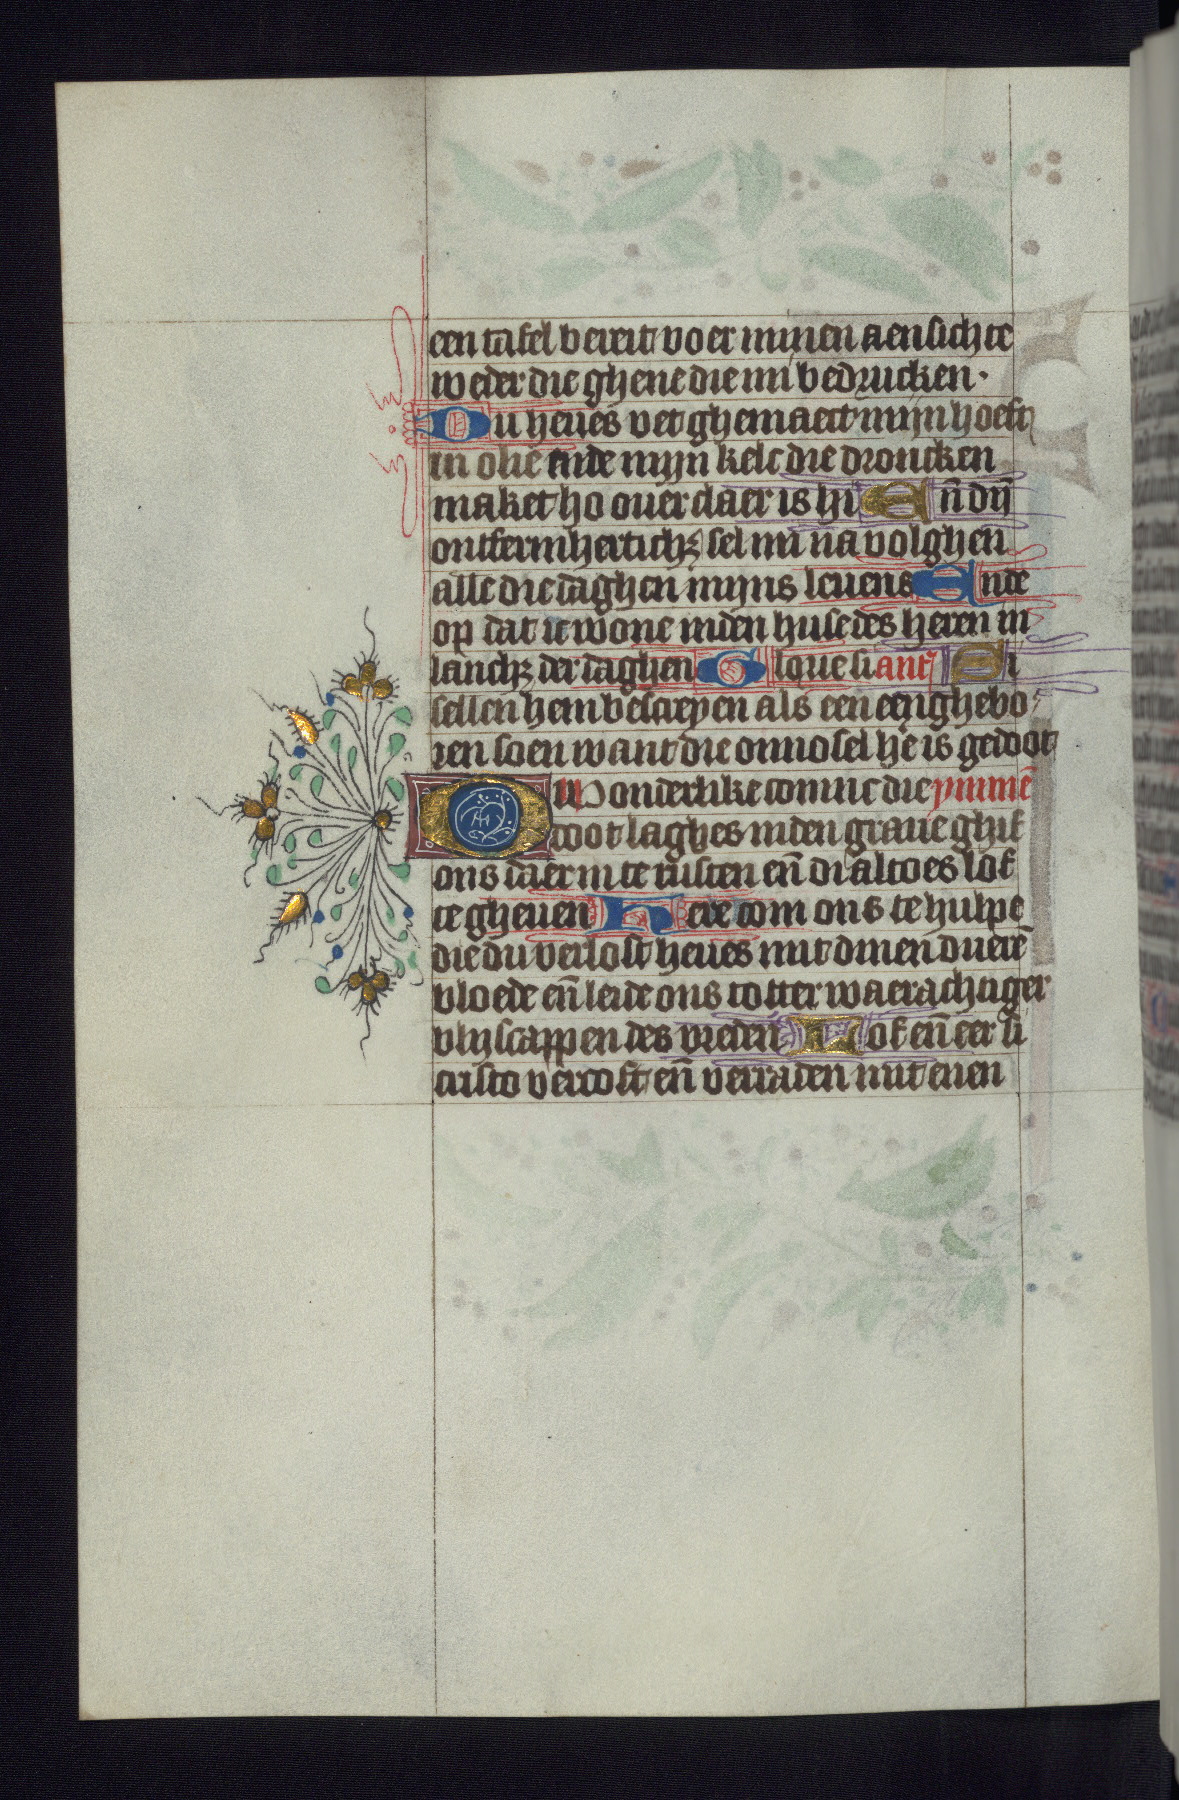 een tafel bereit voer minen aensichte
weder die ghene die mi bedrucken·
Du heues vet ghemaect mijn hoeft
in olie ende mijn kelc die droncken
maket ho ouerclaer is hi Eñ dijn
ontfermherticħ sel mi na volghen
alle die daghen mijns leuens Ende
op dat ic wone inden huse des heren in
lancħ der daghen Glquie si ant Si
sellen hem bescreyen als een eenghebo
ren soen want die onnosel hē is gedoot
DU wonderlike coninc die ymmē
doot laghes inden graue ghif
ons daer in te rusten eñ di altoes lof
te gheuen Here com ons te hulpe
die du verlost heues mit dinen duerē
bloede eñ leide ons totter waerachtiger
blijscappen des vreden Lof eñ eer si
cristo vercoft eñ verraden mit enen